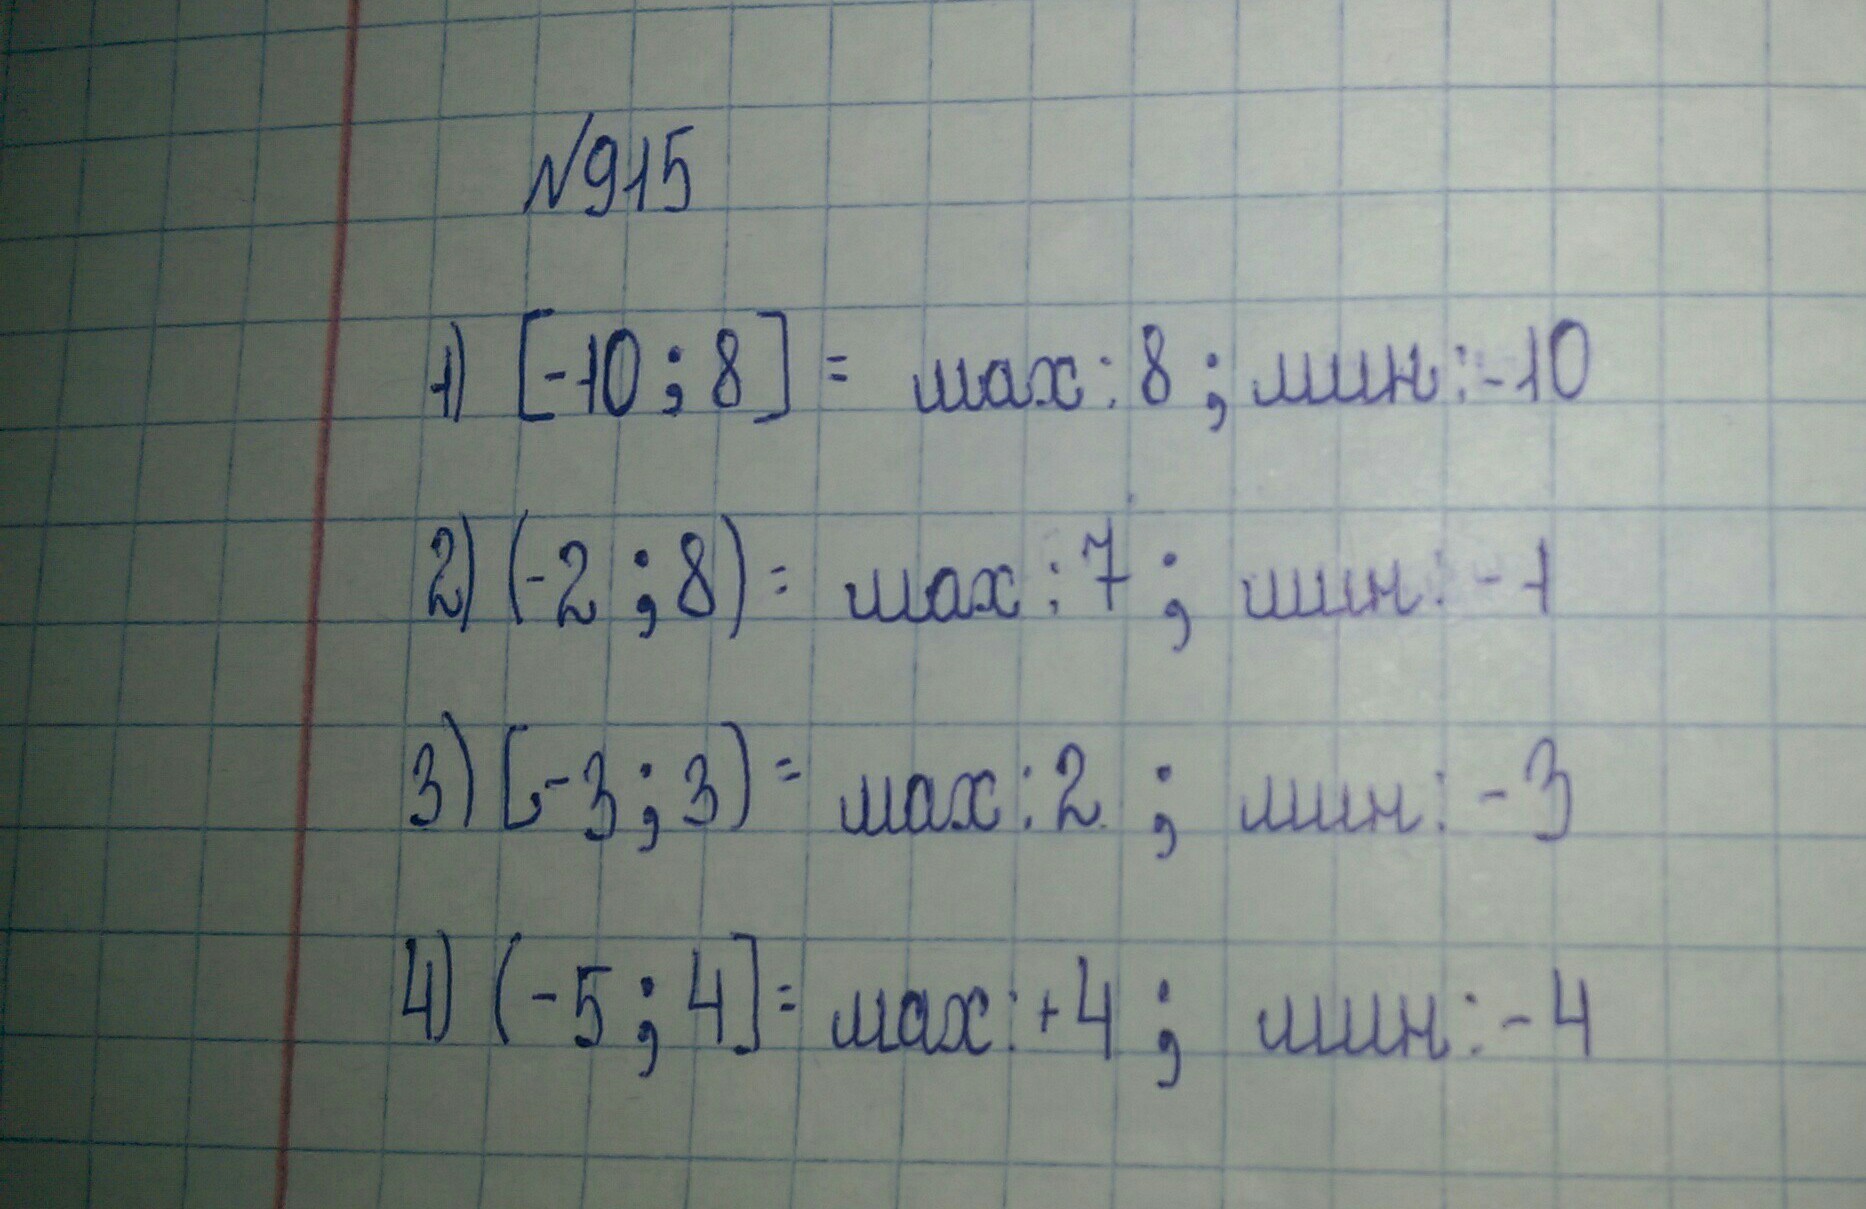 №915
1) [-10; 8] = мах: 8; мин: -10
2) (-2; 8) = мах: 7; мин: -1
3) [-3; 3) = мах: 2; мин: -3
4) (-5; 4] = мах: +4; мин: -4